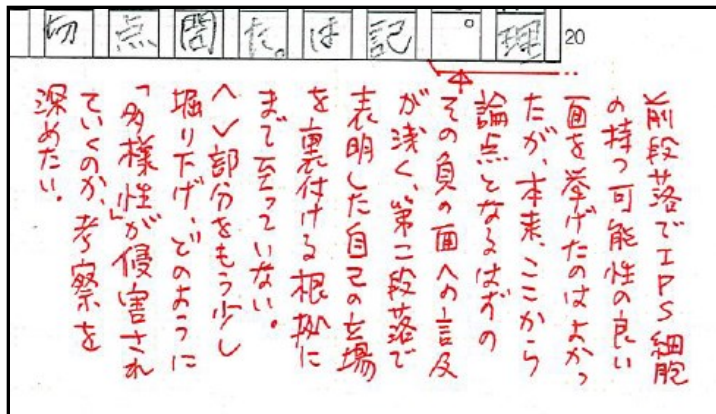 理
。
記
は
た。
問
点
切
20
前段落でIPS細胞
の持つ可能性の良い
面を挙げたのはよかっ
たが、本来、ここから
論点となるはずの
その負の面への言及
が浅く、第二段落で
表明した自己の立場
を裏付ける根拠に
まで至っていない。
〈〉部分をもう少し
掘り下げ、どのように
「多様性」が侵害され
ていくのか、考察を
深めたい。